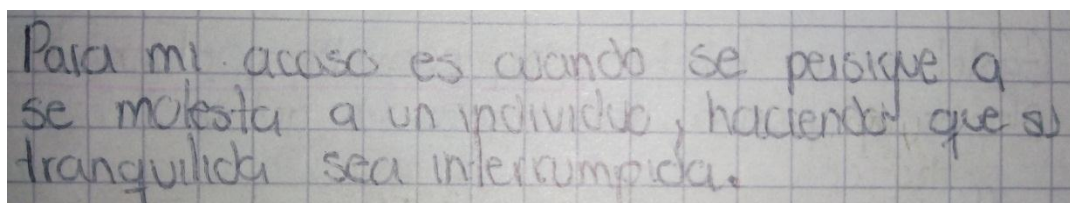 Para mi acoso es cuando se persigue a
se molesta a un individuo, haciendo que su
tranquilida sea interrumpida.